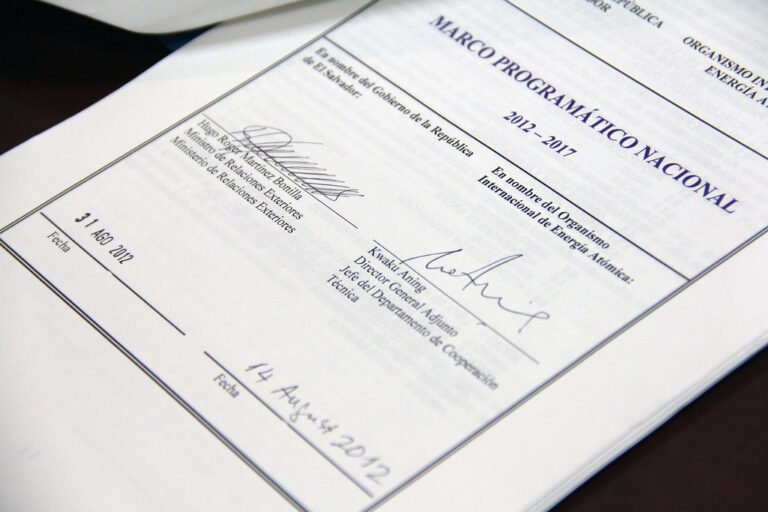 REPÚBLICA
DOR
ORGANISMO IN
ENERGÍA A
MARCO PROGRAMÁTICO NACIONAL
2012 – 2017
En nombre del Gobierno de la República
de El Salvador:
Hugo Roger Martínez Bonilla
Ministro de Relaciones Exteriores
Ministerio de Relaciones Exteriores
31 AGO 2012
Fecha
En nombre del Organismo
Internacional de Energía Atómica:
Kwaku Aning
Director General Adjunto
Jefe del Departamento de Cooperación
Técnica
14 August 2012
Fecha